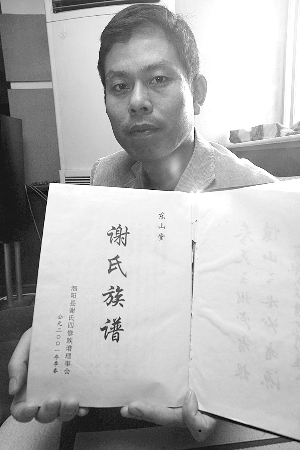 东山堂
谢氏族谱
泗阳县谢氏四修族谱理事会
公元二〇〇一年季春